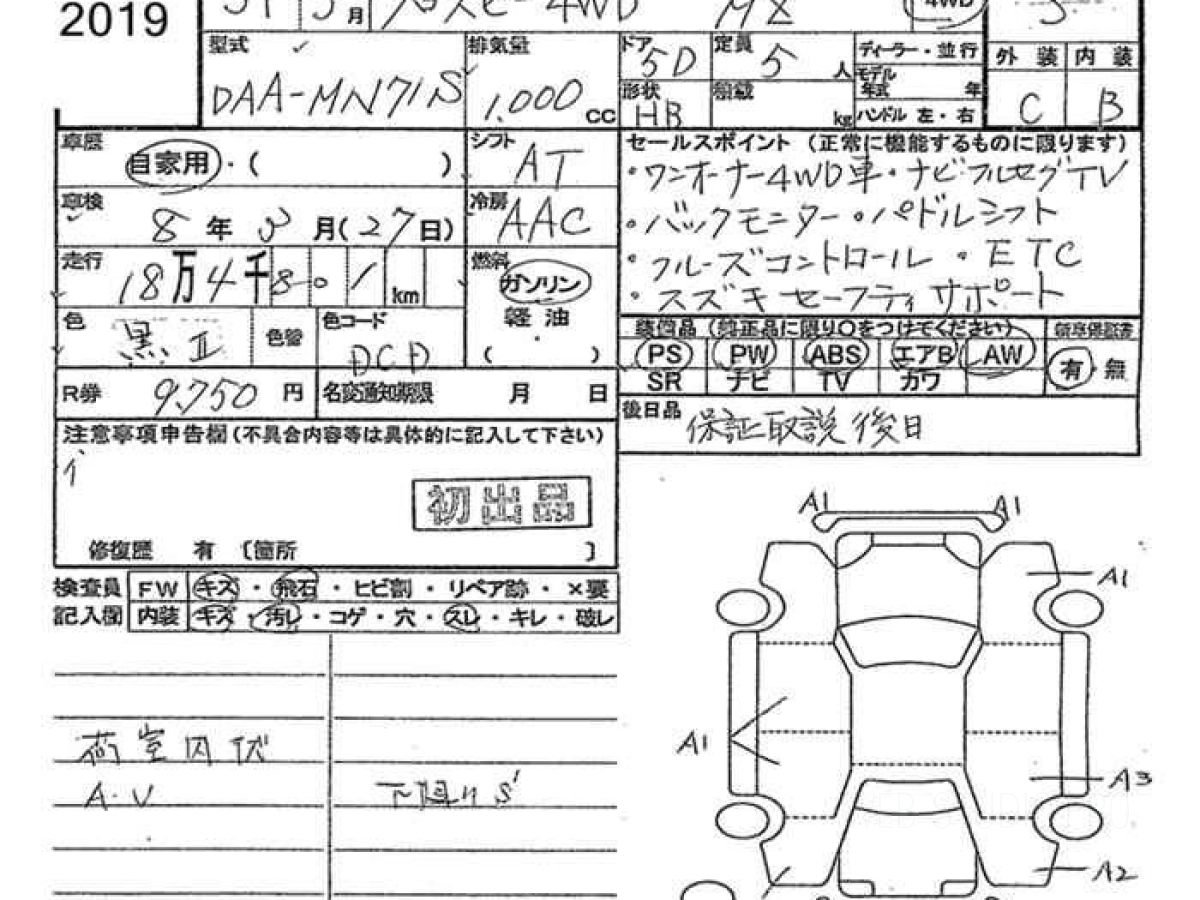 2019
31 3月 クロスビー 4WD MZ 4WD
型式 排気量 ドア 5D 定員 5人 ディーラー・並行 外装 内装
DAA-MN71S 1,000cc 形状 HB 積載 kg モデル年式 年 ハンドル 左・右 C B
車歴 自家用・( ) シフト AT
セールスポイント (正常に機能するものに限ります)
・ワンオーナー4WD車・ナビフルセグTV
・バックモニター・パドルシフト
・クルーズコントロール ・ETC
・スズキセーフティサポート
車検 8年3月(27日) 冷房 AAC
走行 18万4千801km 燃料 ガソリン
軽油
( )
色 黒Ⅱ 色替 色コード
装備品 (純正品に限り○をつけてください) 新車保証書
PS PW ABS エアB AW 有・無
SR ナビ TV カワ
R券 9,750円 名変通知期限 月 日
後日品 保証取説後日
注意事項申告欄(不具合内容等は具体的に記入して下さい)
初出品
修復歴 有 〔箇所 〕
検査員 FW キズ・飛石・ヒビ割・リペア跡・×要
記入欄 内装 キズ・汚レ・コゲ・穴・スレ・キレ・破レ
荷室凹
A・V
下廻りS
A1 A1
A1
A1
A3
A2